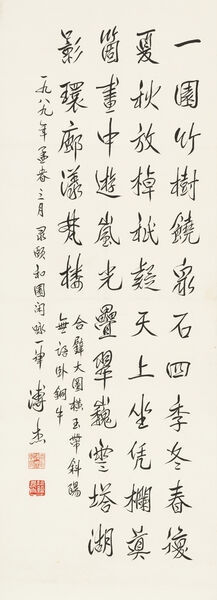 一園竹樹饒泉石四季冬春復
夏秋放棹祇疑天上坐凭欄真
箇畫中遊嵐光疊翠巍雲塔湖
影環廊漾梵樓
合璧大園橫玉帶斜陽
無語卧銅牛
一九八九年孟春三月录頤和園闲咏一律 溥杰